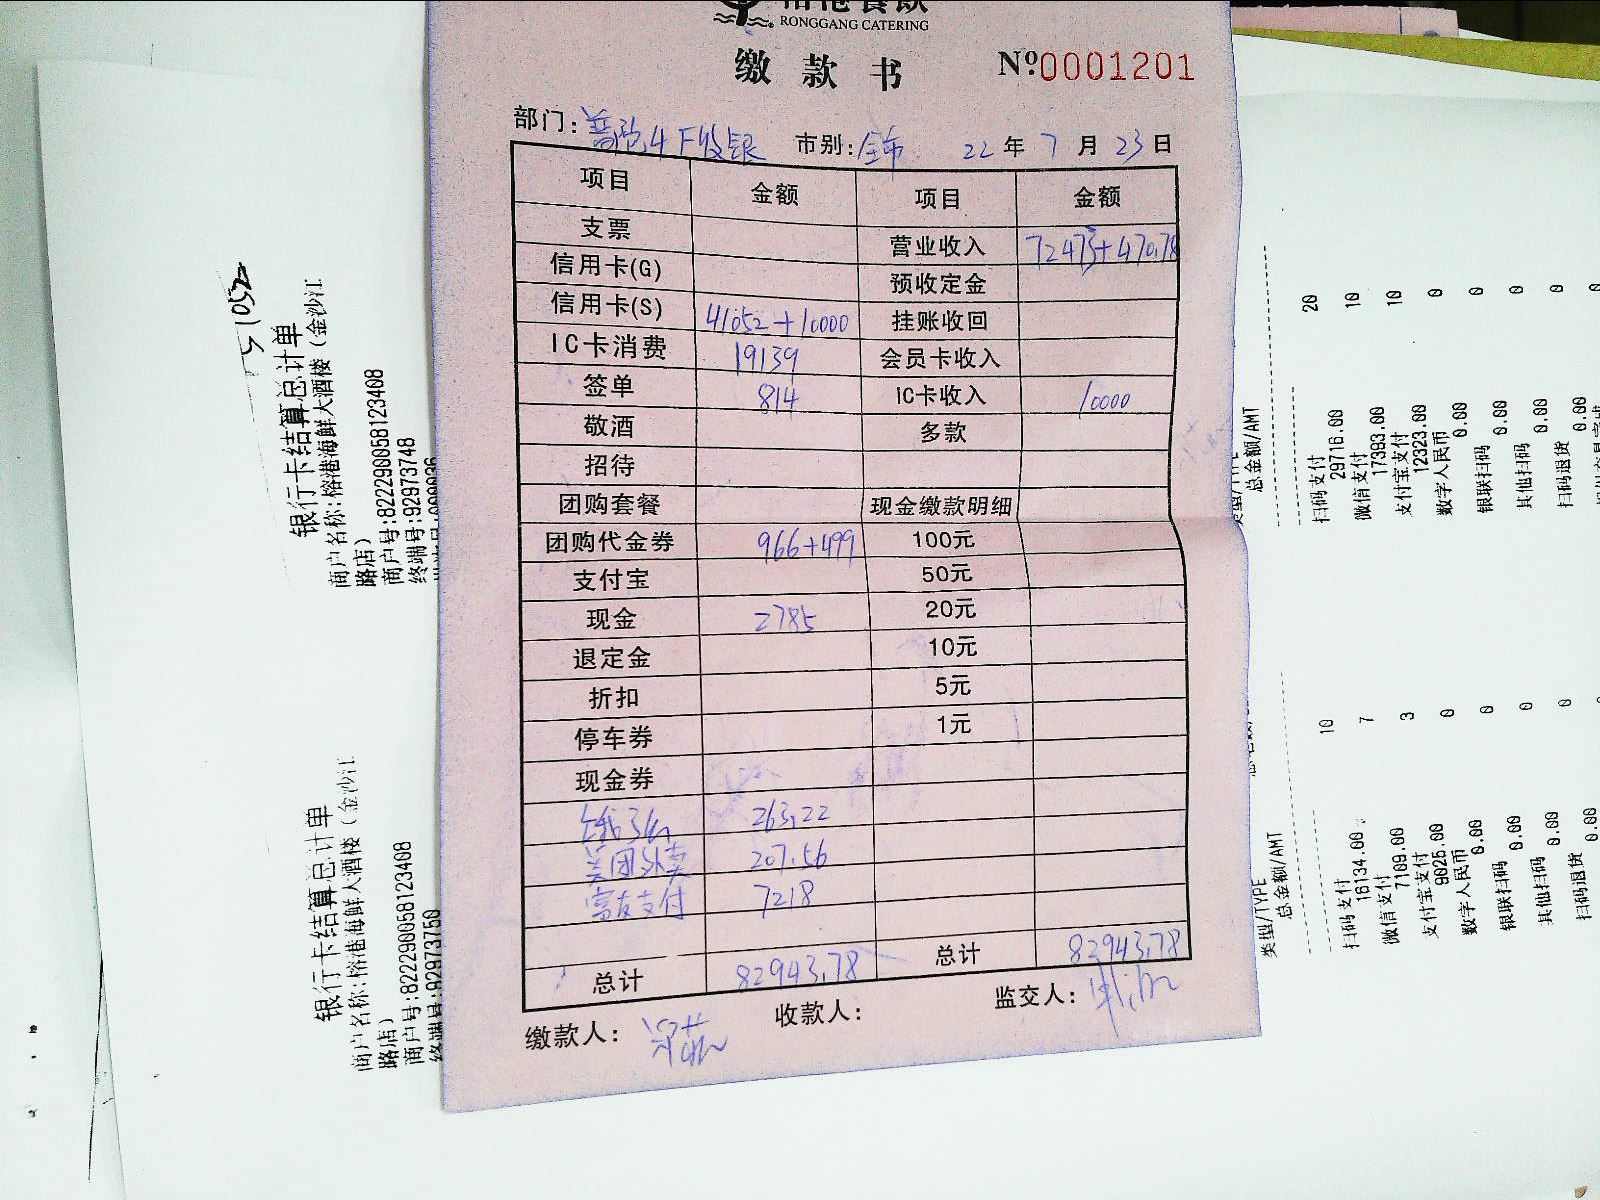 餐饮
RONGGANG CATERING
缴款书 Nº0001201
部门: 4F收银 市别:全市 22年7月23日
项目 金额 项目 金额
支票 营业收入 72473+470.78
信用卡(G) 预收定金
信用卡(S) 41052+10000 挂账收回
IC卡消费 19139 会员卡收入
签单 814 IC卡收入 10000
敬酒 多款
招待
团购套餐 现金缴款明细
团购代金券 966+499 100元
支付宝 50元
现金 2785 20元
退定金 10元
折扣 5元
停车券 1元
现金券
饿了么 263.22
美团外卖 207.56
富友支付 7218
总计 82943.78 总计 82943.78
缴款人: 收款人: 监交人:
51052
银行卡结算总计单
商户名称:榕港海鲜大酒楼（金沙江
路店）
商户号:822290058123408
终端号:92973748
银行卡结算总计单
商户名称:榕港海鲜大酒楼（金沙江
路店）
商户号:822290058123408
终端号:92973750
类型/TYPE
总金额/AMT
扫码支付 20
29716.00
微信支付 10
17393.00
支付宝支付 10
12323.00
数字人民币 0
0.00
银联扫码 0
0.00
其他扫码 0
0.00
扫码退货 0
0.00
类型/TYPE
总金额/AMT
扫码支付 10
16134.00
微信支付 7
7109.00
支付宝支付 3
9025.00
数字人民币 0
0.00
银联扫码 0
0.00
其他扫码 0
0.00
扫码退货 0
0.00